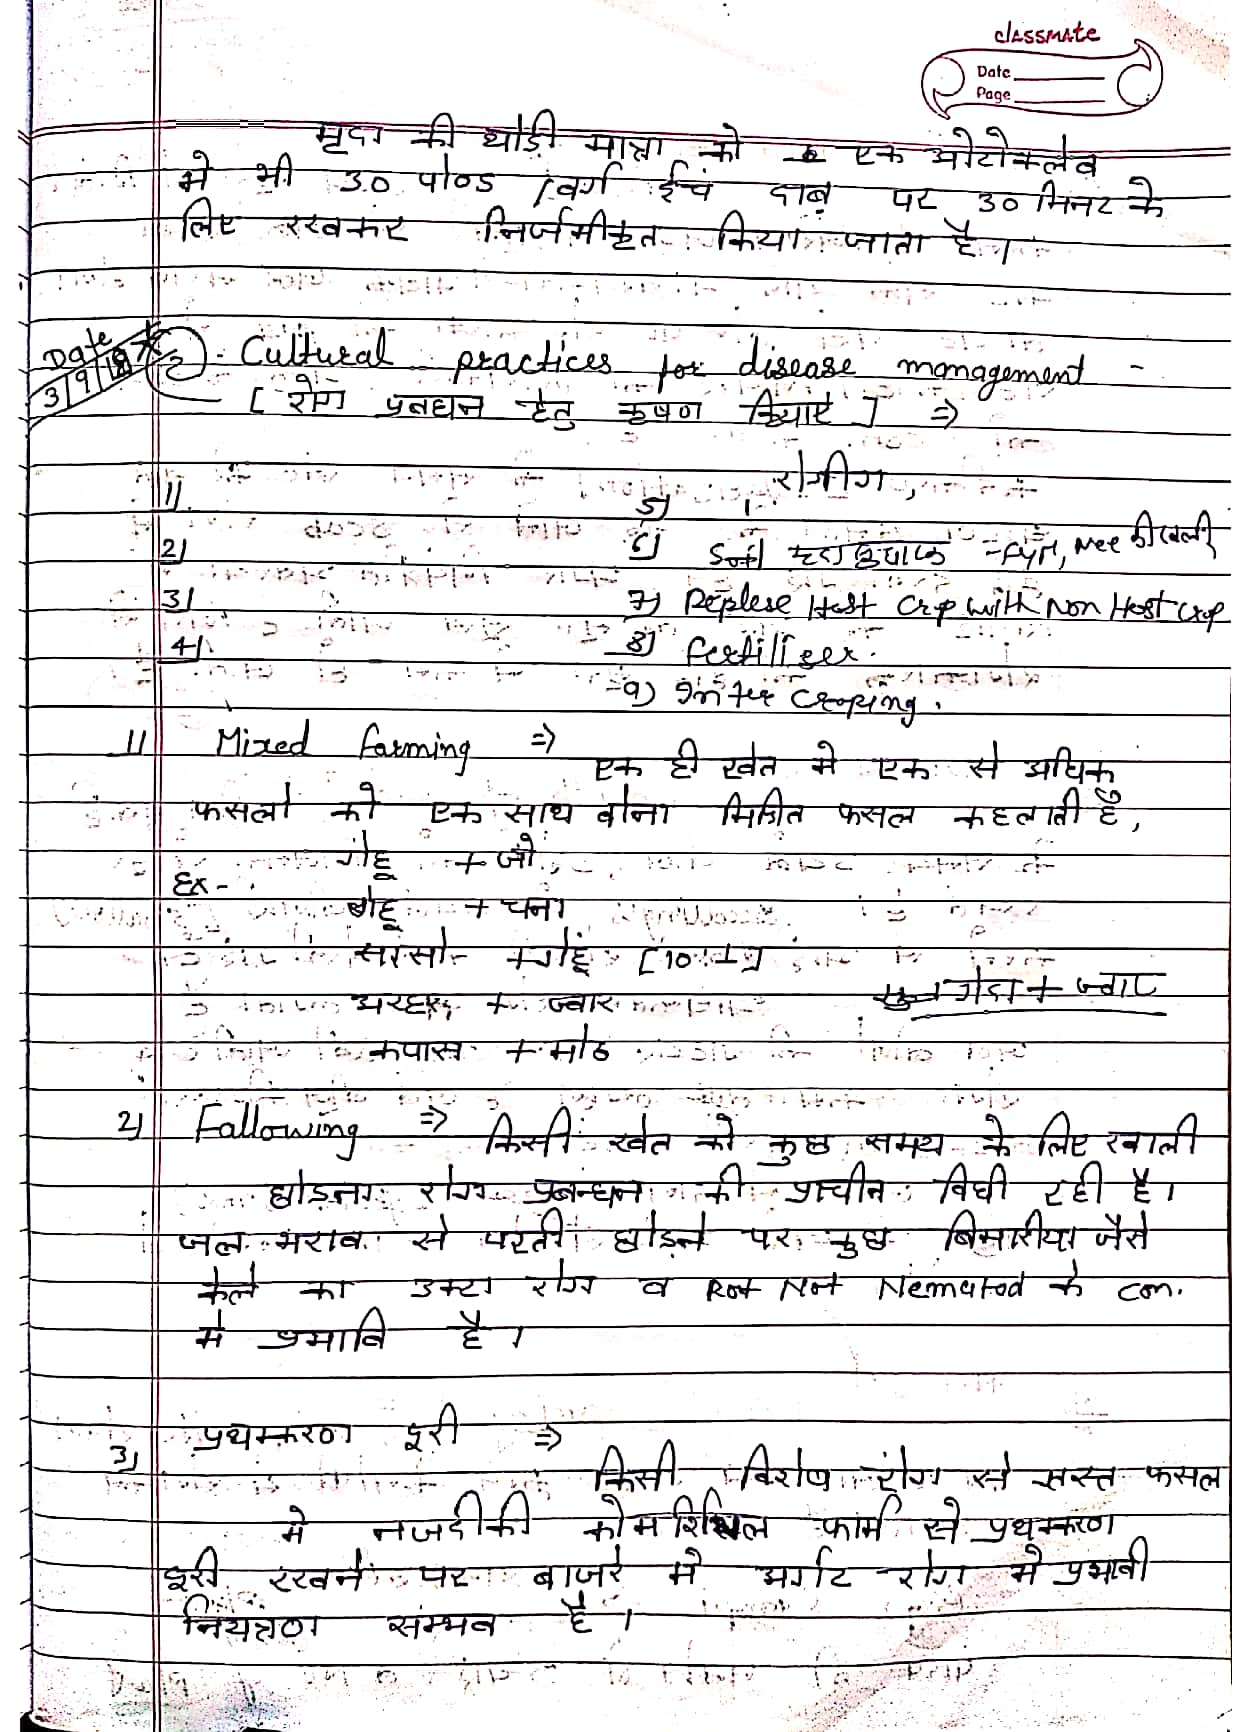 classmate
Date
Page
मृदा की थोडी मात्रा को एक ओटोक्लेव
मे भी 30 पोण्ड /वर्ग ईचं दाब पर 30 मिनट के
लिए रखकर निर्जमीकृत किया जाता है।
Date
3/9/18
2. Cultural practices for disease management -
[ रोग प्रबधन हेतु कृषण क्रियाएं ] ⇒
1)
2)
3)
4)
5) रोगींग,
6) Soil मृदा सुधारक - FYM, की खली
7) Replese Host Crop with Non Host crop
8) fertilizer.
9) Inter Croping.
1) Mixed farming ⇒ एक ही खेत मे एक से अधिक
फसलो को एक साथ बोना मिश्रित फसल कहलाती है,
Ex - गेहू + जो,
गेहू + चना
सरसो + गेहूं [10:1]
अरहर + ज्वार
गेंदा + ज्वार
कपास + मोठ
2) Fallowing ⇒ किसी खेत को कुछ समय के लिए खाली
छोडना रोग प्रबन्धन की प्राचीन विधी रही है।
जल भराव से परती छोडने पर कुछ बिमारीया जैसे
केले का उक्टा रोग व Rot Not Nematod के con.
मे प्रभावि है।
3) प्रथक्करण दूरी ⇒
किसी विशेष रोग से ग्रस्त फसल
मे नजदीकी कोमर्शियल फार्म से प्रथक्करण
दूरी रखने पर बाजरे मे अर्गट रोग मे प्रभावी
नियत्रण सम्भव है।